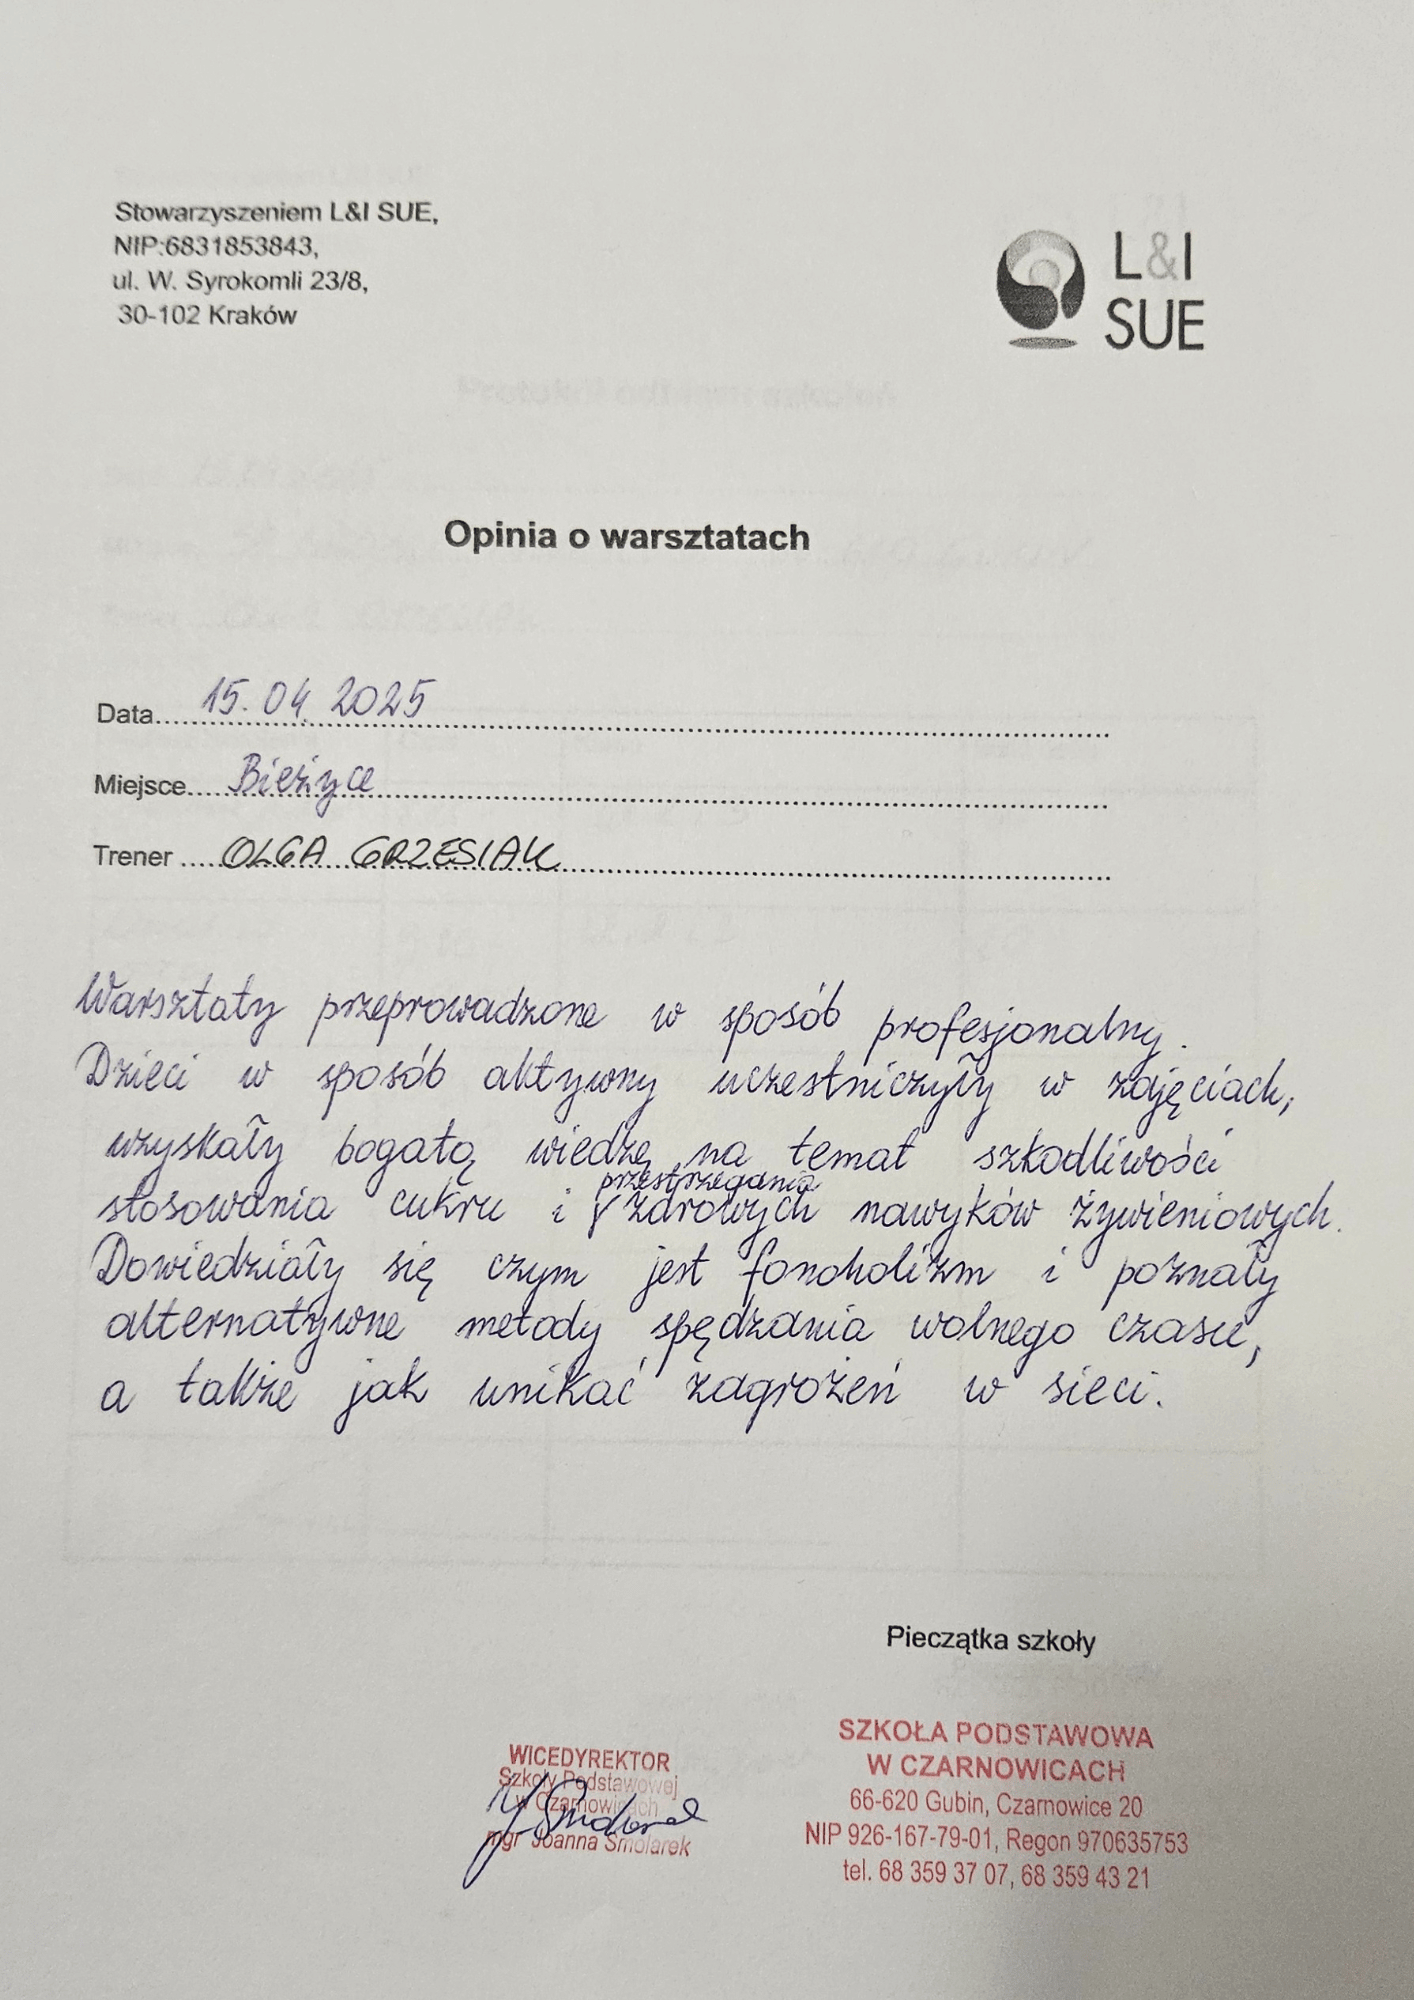 Stowarzyszeniem L&I SUE,
NIP:6831853843,
ul. W. Syrokomli 23/8,
30-102 Kraków
L&I
SUE
Opinia o warsztatach
Data..... 15.04.2025
Miejsce..... Bieżyce
Trener ..... OLGA GRZESIAK
Warsztaty przeprowadzone w sposób profesjonalny.
Dzieci w sposób aktywny uczestniczyły w zajęciach,
uzyskały bogatą wiedzę na temat szkodliwości
stosowania cukru i przestrzegania zdrowych nawyków żywieniowych.
Dowiedziały się czym jest fonoholizm i poznały
alternatywne metody spędzania wolnego czasu,
a także jak unikać zagrożeń w sieci.
Pieczątka szkoły
WICEDYREKTOR
Szkoły Podstawowej
w Czarnowicach
mgr Joanna Smolarek
SZKOŁA PODSTAWOWA
W CZARNOWICACH
66-620 Gubin, Czarnowice 20
NIP 926-167-79-01, Regon 970635753
tel. 68 359 37 07, 68 359 43 21